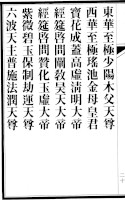 東華至極少陽木父天尊
西華至極瑤池金母皇君
寶花成蓋高虛清明大帝
經筵啓問闡教昊天大帝
經筵啓問贊化玉虛大帝
紫微碧玉保制劫運天尊
六波天主普施法潤天尊